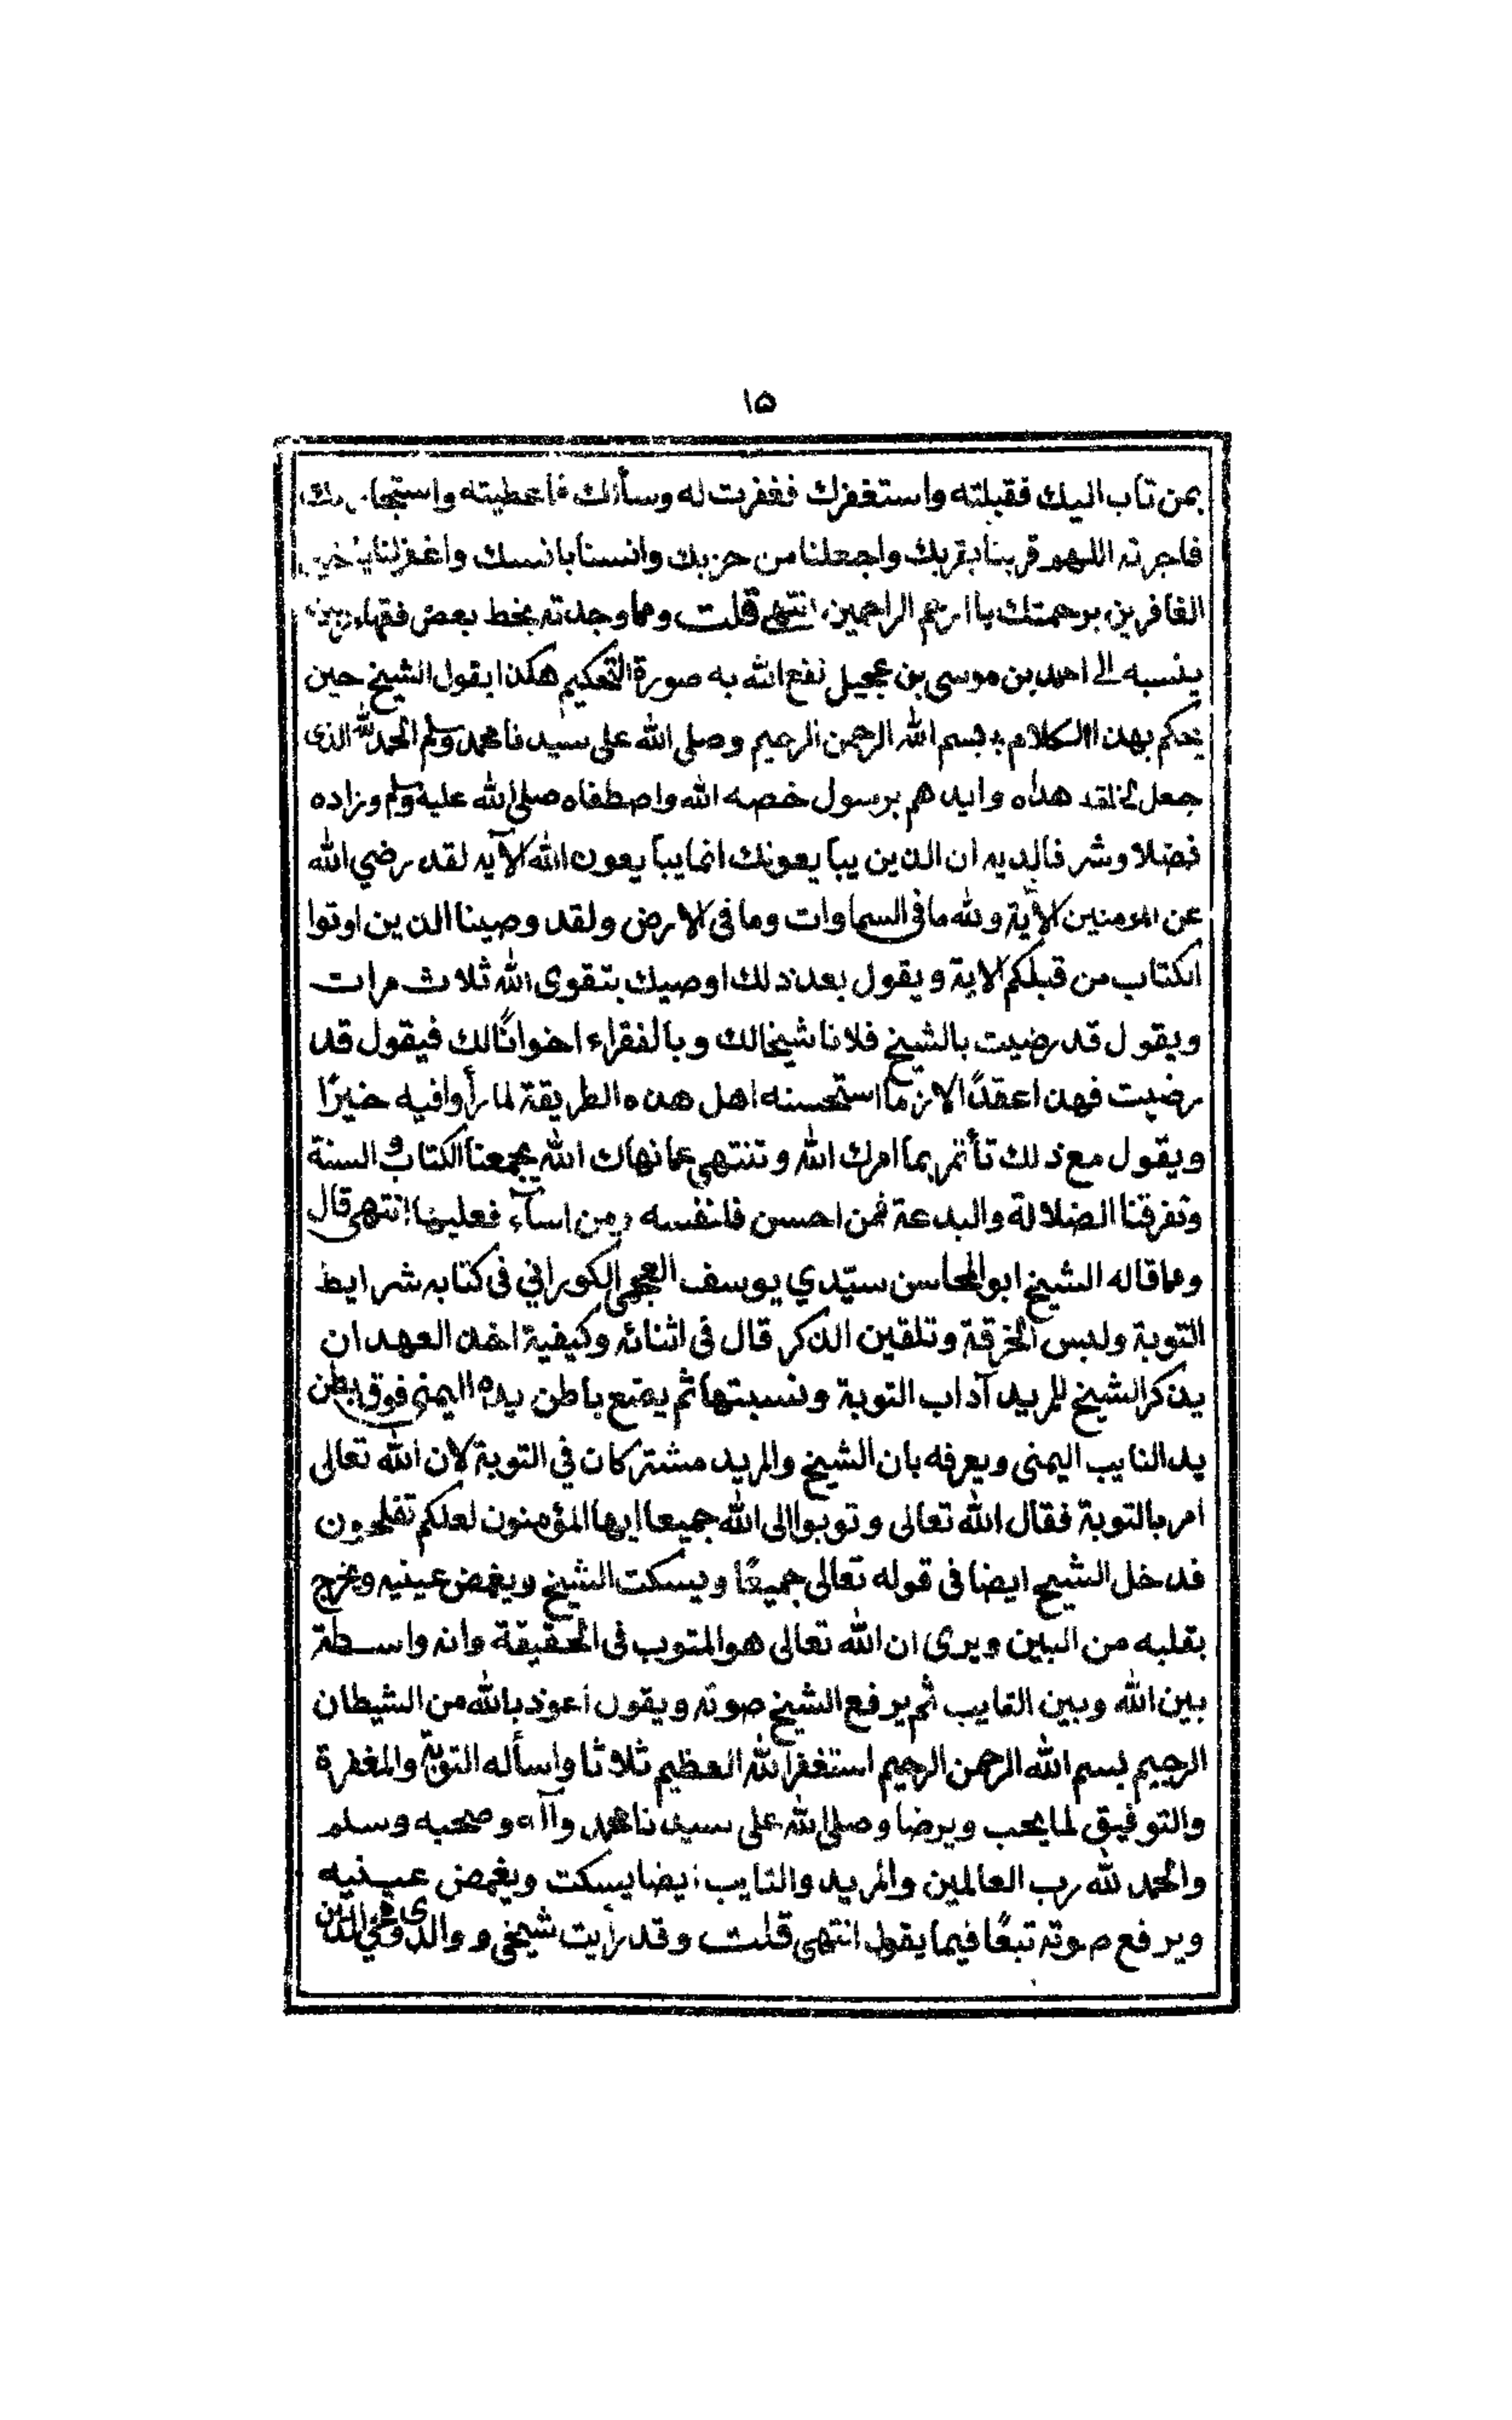 ١٥
بمن تاب اليك فقبلته واستغفرك فغفرت له وسألك فاعطيته واستجار بك
فاجرته اللهم قربنا بقربك واجعلنا من حزبك وانسنا بانسك واغفرلنا يا خير
الغافرين برحمتك ياارحم الراحمين انتهى قلت ومما وجدته بخط بعض فقهاء
ينسبه الى احمد بن موسى بن عجيل نفع الله به صورة التحكيم هكذا يقول الشيخ حين
يحكم بهذا الكلام بسم الله الرحمن الرحيم وصلى الله على سيدنا محمد وسلم الحمد لله الذى
جعل لخلقه هداه وايدهم برسول خصه الله واصطفاه صلى الله عليه وسلم وزاده
فضلا وشرفا لديه ان الذين يبايعونك انما يبايعون الله الآيه لقد رضي الله
عن المومنين الآية ولله ما فى السماوات وما فى الارض ولقد وصينا الذين اوتوا
الكتاب من قبلكم الاية ويقول بعد ذلك اوصيك بتقوى الله ثلاث مرات
ويقول قد رضيت بالشيخ فلانا شيخالك وبالفقراء اخوانًا لك فيقول قد
رضيت فهذا عقدًا لازما استحسنه اهل هذه الطريقة لما رأوا فيه خيرًا
ويقول مع ذلك تأتمر بما امرك الله وتنتهي عما نهاك الله يجمعنا الكتاب والسنة
وتفرقنا الضلالة والبدعة فمن احسن فلنفسه ومن اسآء فعليها انتهى قال
ومما قاله الشيخ ابو المحاسن سيّدي يوسف العجمى الكوراني فى كتابه شرايط
التوبة ولبس الخرقة وتلقين الذكر قال فى اثنائه وكيفية اخذ العهد ان
يذكر الشيخ للمريد آداب التوبة ونسبتها ثم يضع باطن يده اليمنى فوق بطن
يد التايب اليمنى ويعرفه بان الشيخ والمريد مشتركان في التوبة لان الله تعالى
امر بالتوبة فقال الله تعالى وتوبوا الى الله جميعا ايها المؤمنون لعلكم تفلحون
فدخل الشيخ ايضا فى قوله تعالى جميعًا ويسكت الشيخ ويغمض عينيه ويخرج
بقلبه من البين ويرى ان الله تعالى هو المتوب فى الحقيقة وانه واسطة
بين الله وبين التايب ثم يرفع الشيخ صوته ويقول اعوذ بالله من الشيطان
الرجيم بسم الله الرحمن الرحيم استغفر الله العظيم ثلاثا واسأله التوبة والمغفرة
والتوفيق لما يحب ويرضا وصلى الله على سيدنا محمد وآله وصحبه وسلم
والحمد لله رب العالمين والمريد والتايب ايضا يسكت ويغمض عينيه
ويرفع صوته تبعًا فيما يقول انتهى قلت وقد رأيت شيخى ووالدى